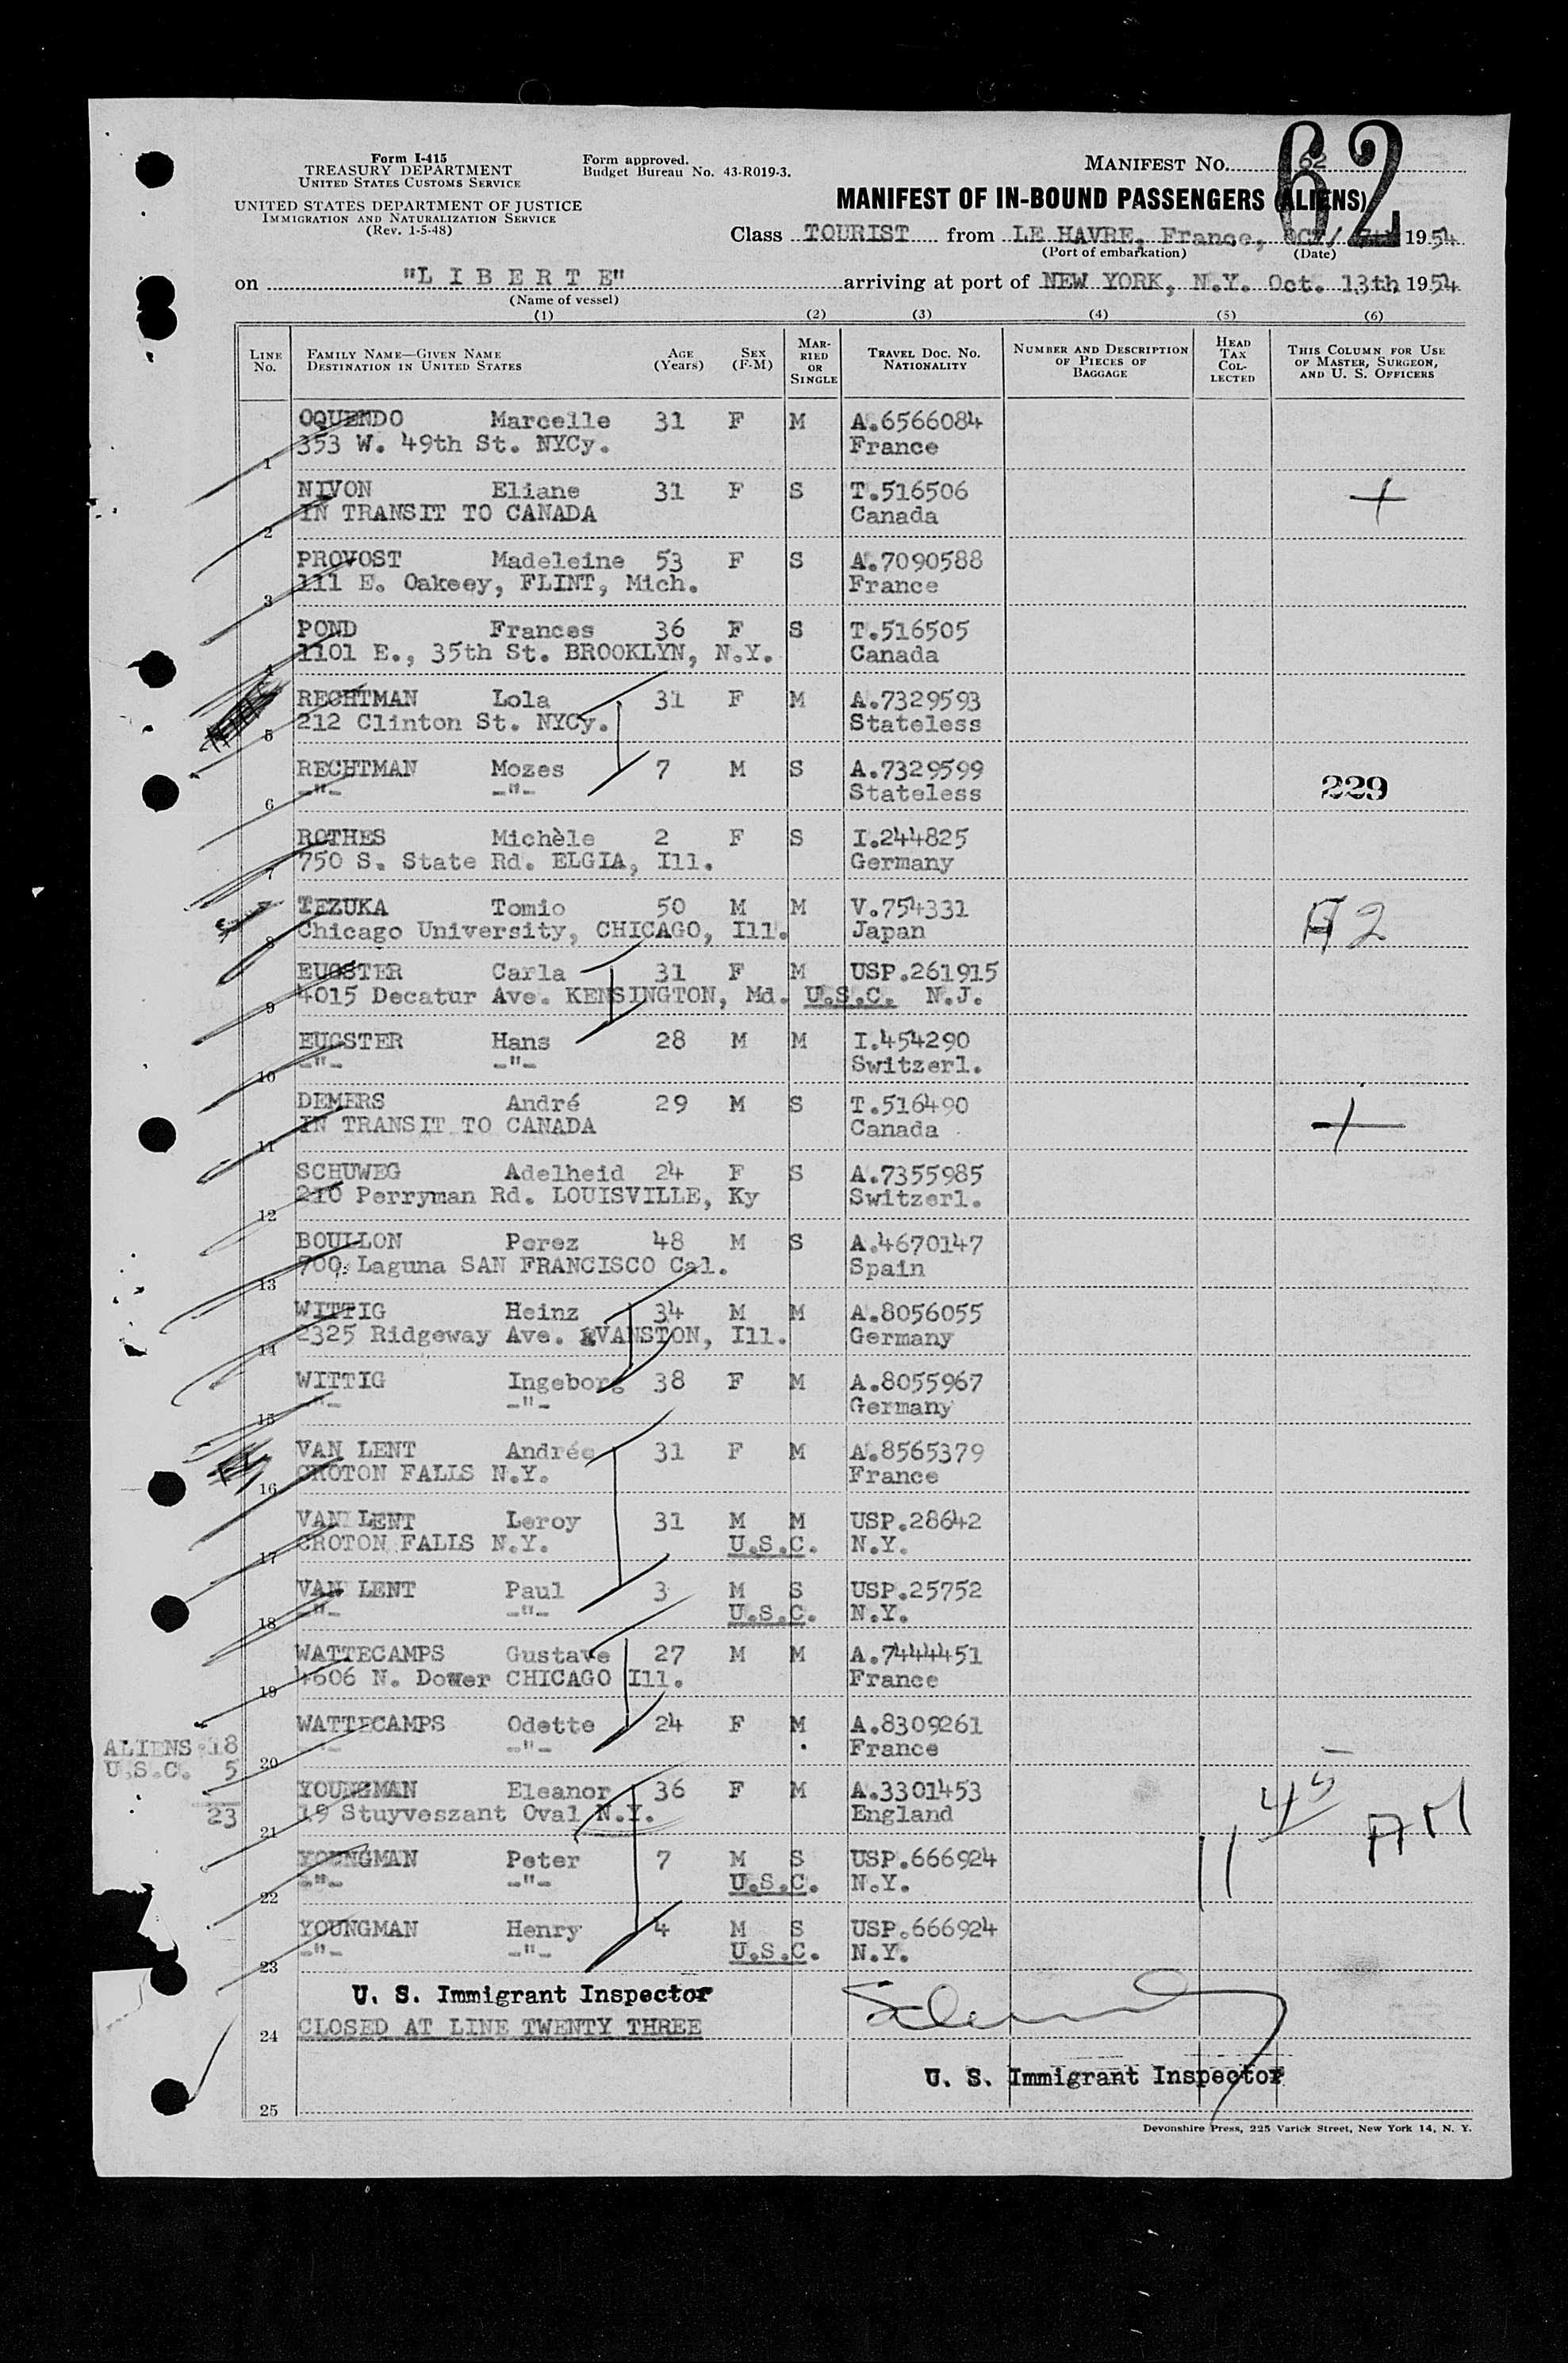 Form I-415
TREASURY DEPARTMENT
UNITED STATES CUSTOMS SERVICE
UNITED STATES DEPARTMENT OF JUSTICE
IMMIGRATION AND NATURALIZATION SERVICE
(Rev. 1-5-48)
Form approved.
Budget Bureau No. 43-R019-3.
MANIFEST NO. 62
62
MANIFEST OF IN-BOUND PASSENGERS (ALIENS)
Class TOURIST from LE HAVRE, France, OCT/ 7th 1954
(Port of embarkation) (Date)
on "L I B E R T E" arriving at port of NEW YORK, N.Y. Oct. 13th, 1954
(Name of vessel)
(1) (2) (3) (4) (5) (6)
LINE No. FAMILY NAME—GIVEN NAME DESTINATION IN UNITED STATES AGE (Years) SEX (F-M) MARRIED OR SINGLE TRAVEL DOC. NO. NATIONALITY NUMBER AND DESCRIPTION OF PIECES OF BAGGAGE HEAD TAX COLLECTED THIS COLUMN FOR USE OF MASTER, SURGEON, AND U. S. OFFICERS
OQUENDO Marcelle 31 F M A.6566084
1 353 W. 49th St. NYCy. France
NIVON Eliane 31 F S T.516506 +
2 IN TRANSIT TO CANADA Canada
PROVOST Madeleine 53 F S A.7090588
3 111 E. Oakeey, FLINT, Mich. France
POND Frances 36 F S T.516505
4 1101 E., 35th St. BROOKLYN, N.Y. Canada
RECHTMAN Lola 31 F M A.7329593
5 212 Clinton St. NYCy. Stateless
RECHTMAN Mozes 7 M S A.7329599
6 -"- -"- Stateless 229
ROTHES Michèle 2 F S I.244825
7 750 S. State Rd. ELGIA, Ill. Germany
TEZUKA Tomio 50 M M V.754331
8 Chicago University, CHICAGO, Ill. Japan
EUGSTER Carla 31 F M USP.261915
9 4015 Decatur Ave. KENSINGTON, Md. U.S.C. N.J.
EUGSTER Hans 28 M M I.454290
10 -"- -"- Switzerl.
DEMERS André 29 M S T.516490 +
11 IN TRANSIT TO CANADA Canada
SCHUWEG Adelheid 24 F S A.7355985
12 210 Perryman Rd. LOUISVILLE, Ky Switzerl.
BOULLON Perez 48 M S A.4670147
13 700 Laguna SAN FRANCISCO Cal. Spain
WITTIG Heinz 34 M M A.8056055
14 2325 Ridgeway Ave. EVANSTON, Ill. Germany
WITTIG Ingeborg 38 F M A.8055967
15 -"- -"- Germany
VAN LENT Andrée 31 F M A.8565379
16 CROTON FALLS N.Y. France
VAN LENT Leroy 31 M M USP.28642
17 CROTON FALLS N.Y. U.S.C. N.Y.
VAN LENT Paul 3 M S USP.25752
18 -"- -"- U.S.C. N.Y.
WATTECAMPS Gustave 27 M M A.7444451
19 4606 N. Dower CHICAGO Ill. France
WATTECAMPS Odette 24 F M A.8309261
20 -"- -"- France
ALIENS 18
U.S.C. 5
23
YOUNGMAN Eleanor 36 F M A.3301453
21 19 Stuyveszant Oval N.Y. England
11 45 AM
YOUNGMAN Peter 7 M S USP.666924
22 -"- -"- U.S.C. N.Y.
YOUNGMAN Henry 4 M S USP.666924
23 -"- -"- U.S.C. N.Y.
U. S. Immigrant Inspector
24 CLOSED AT LINE TWENTY THREE
U. S. Immigrant Inspector
25
Devonshire Press, 225 Varick Street, New York 14, N. Y.